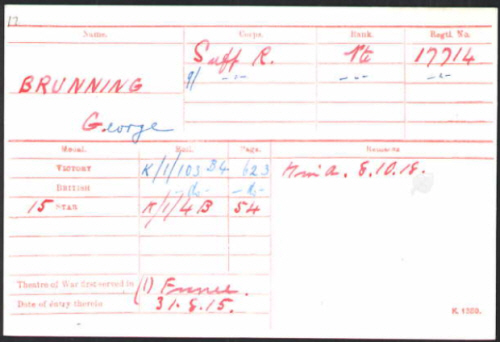 17
Name. Corps. Rank. Regtl. No.
BRUNNING Suff R. Pte 17714
9/ -"- -"- -"-
George
Medal. Roll. Page. Remarks
VICTORY K/1/103 B4 623 K in a. 8.10.18.
BRITISH -do- -do-
15 STAR K/1/4 B 54
Theatre of War first served in (1) France.
Date of entry therein 31.8.15.
K. 1380.